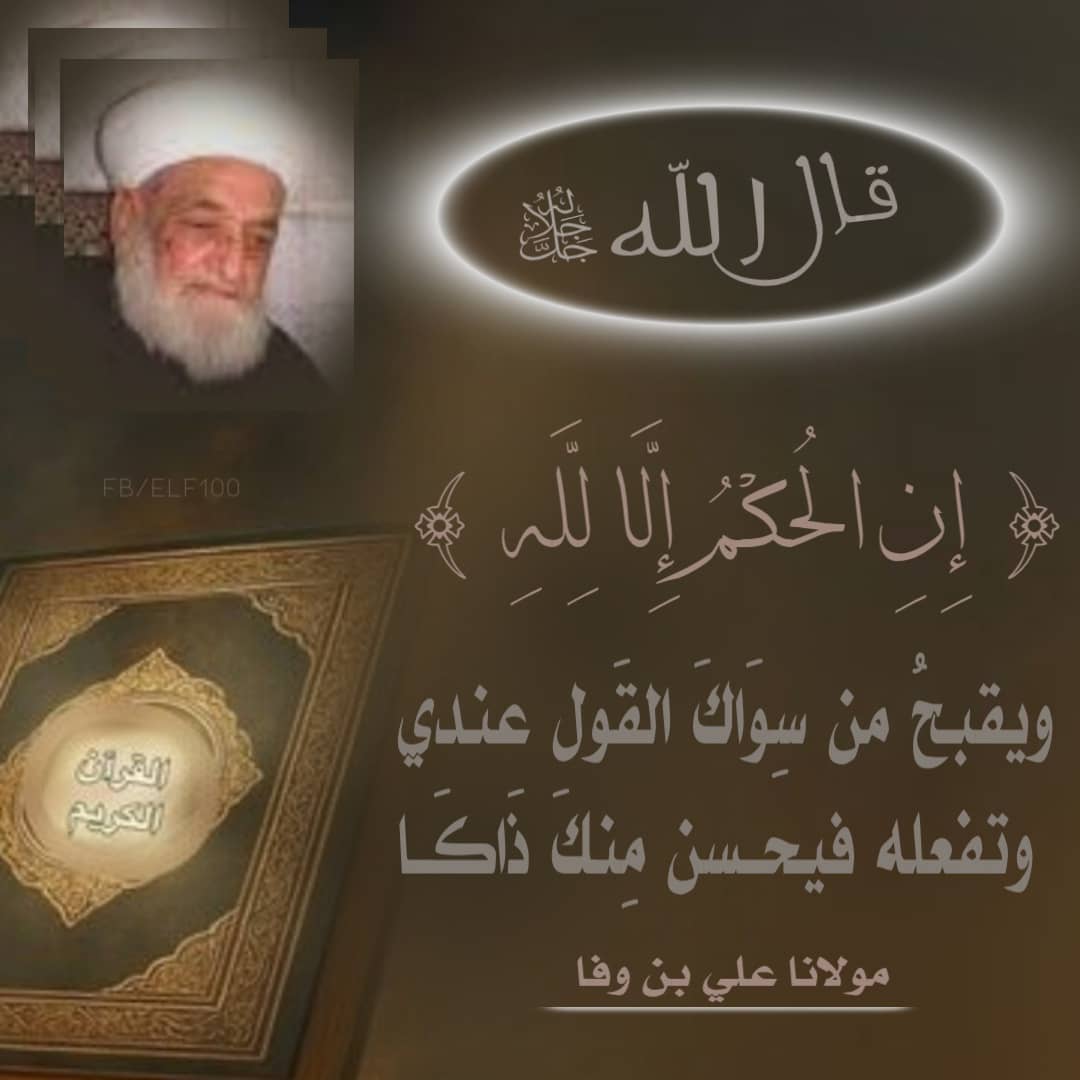 قال الله جل جلاله
﴿ إِنِ الْحُكْمُ إِلَّا لِلَّهِ ﴾
FB/ELF100
ويقبحُ من سِوَاكَ القَولَ عندِي
وتفعله فيحسن مِنكَ ذَاكَا
القرآن
الكريم
مولانا علي بن وفا